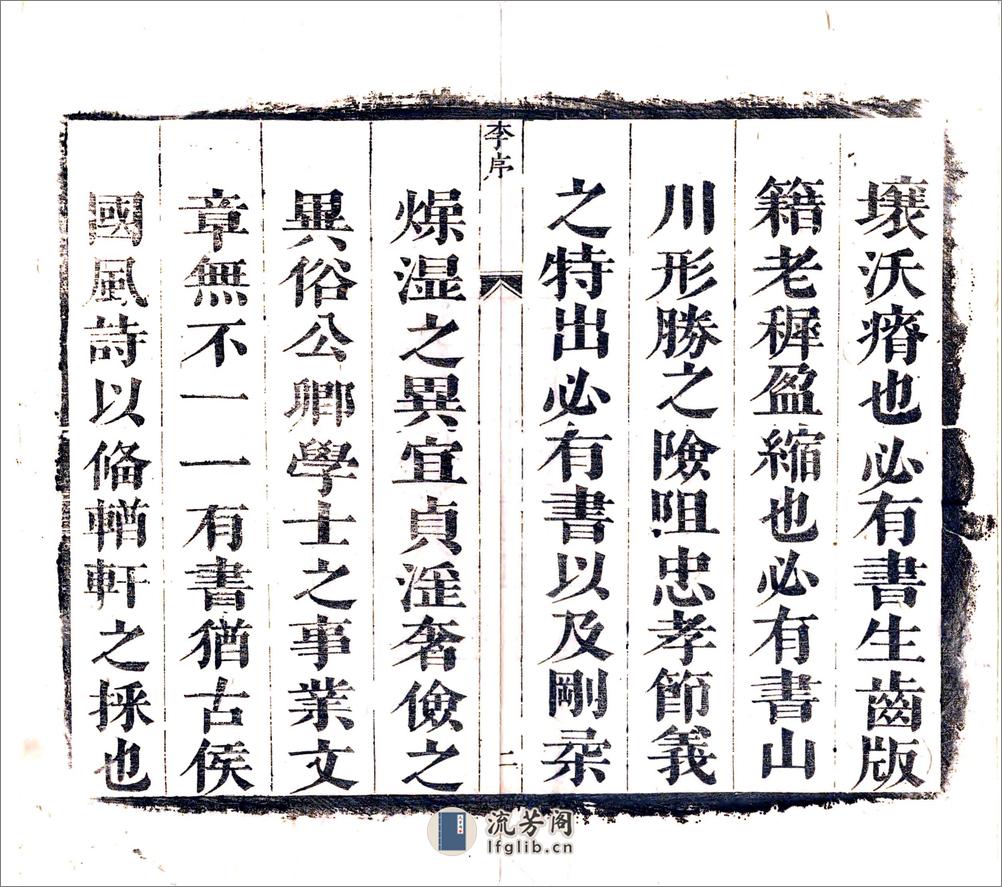 壤沃瘠也必有書生齒版
籍老穉盈縮也必有書山
川形勝之險咀忠孝節義
之特出必有書以及剛柔
李序
二
燥湿之異宜貞淫奢儉之
異俗公卿學士之事業文
章無不一一有書猶古侯
國風詩以俻輶軒之採也
流芳阁
lfglib.cn